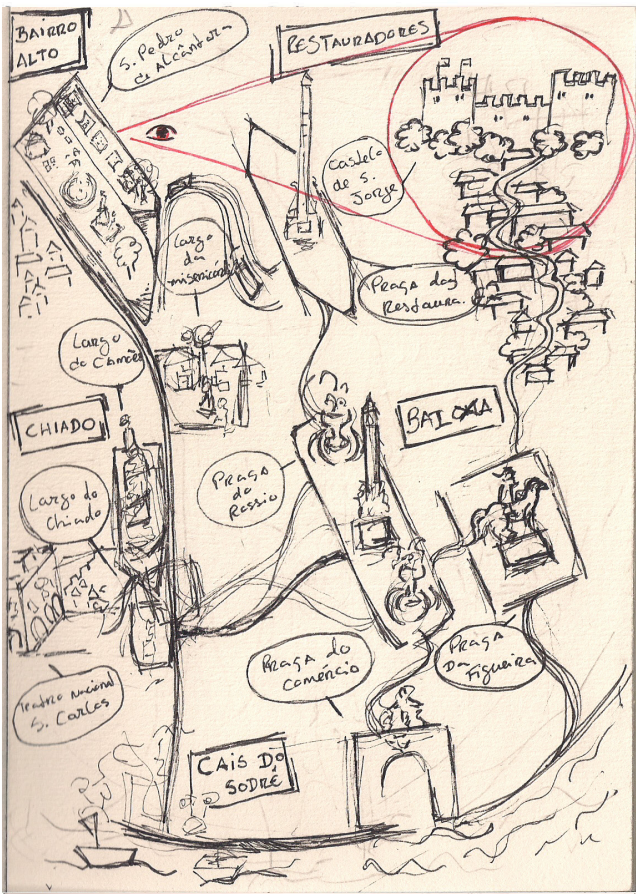 BAIRRO
ALTO
S. Pedro
de Alcântara
RESTAURADORES
Castelo
de S.
Jorge
Largo
da
misericórdia
Praça dos
Restaura.
Largo
do Camões
CHIADO
BAIXA
Largo do
Chiado
Praça
do
Rossio
Praça do
Comércio
Praça
Da
Figueira
Teatro Nacional
S. Carlos
CAIS DO
SODRÉ